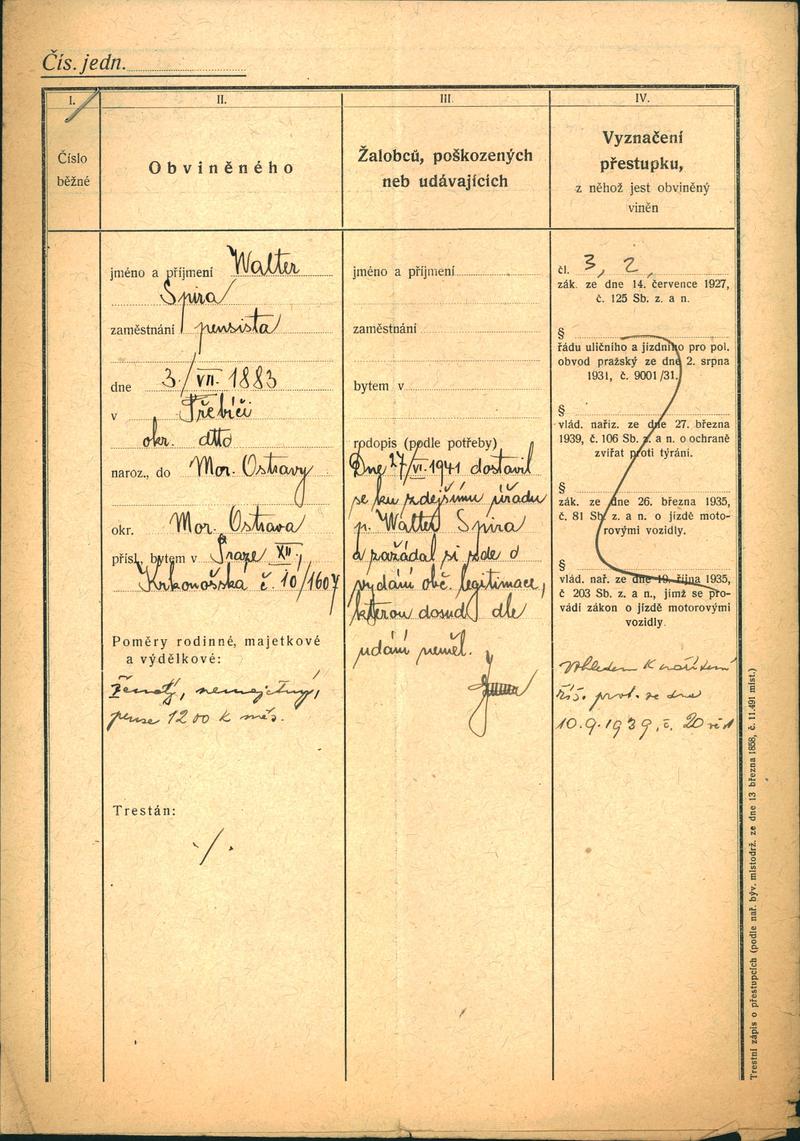 Čís. jedn.
I.
Číslo
běžné
II.
Obviněného
III.
Žalobců, poškozených
neb udávajících
IV.
Vyznačení
přestupku,
z něhož jest obviněný
viněn
jméno a příjmení Walter
Spira
zaměstnání pensista
dne 3./VII. 1883
v Třebíči
okr. dtto
naroz., do Mor. Ostravy
okr. Mor. Ostrava
přísl., bytem v Praze XII.,
Krkonošská č. 10/1607
Poměry rodinné, majetkové
a výdělkové:
ženatý, nemajetný,
pense 1200 K měs.
Trestán:
./.
jméno a příjmení
zaměstnání
bytem v
rodopis (podle potřeby)
Dne 27/VI. 1941 dostavil
se ku zdejšímu úřadu
p. Walter Spira
a zažádal si zde o
vydání obč. legitimace,
kterou dosud dle
udání neměl.
čl. 3, 2,
zák. ze dne 14. července 1927,
č. 125 Sb. z. a n.
§
řádu uličního a jízdního pro pol.
obvod pražský ze dne 2. srpna
1931, č. 9001/31.
§
vlád. naříz. ze dne 27. března
1939, č. 106 Sb. z. a n. o ochraně
zvířat proti týrání.
§
zák. ze dne 26. března 1935,
č. 81 Sb. z. a n. o jízdě moto-
rovými vozidly.
§
vlád. nař. ze dne 19. října 1935,
č 203 Sb. z. a n., jímž se pro-
vádí zákon o jízdě motorovými
vozidly.
Vzhledem k nařízení
říš. prot. ze dne
10.9.1939, č. 20
Trestní zápis o přestupcích (podle nař. býv. místodrž. ze dne 13 března 1858, č. 11.491 míst.)